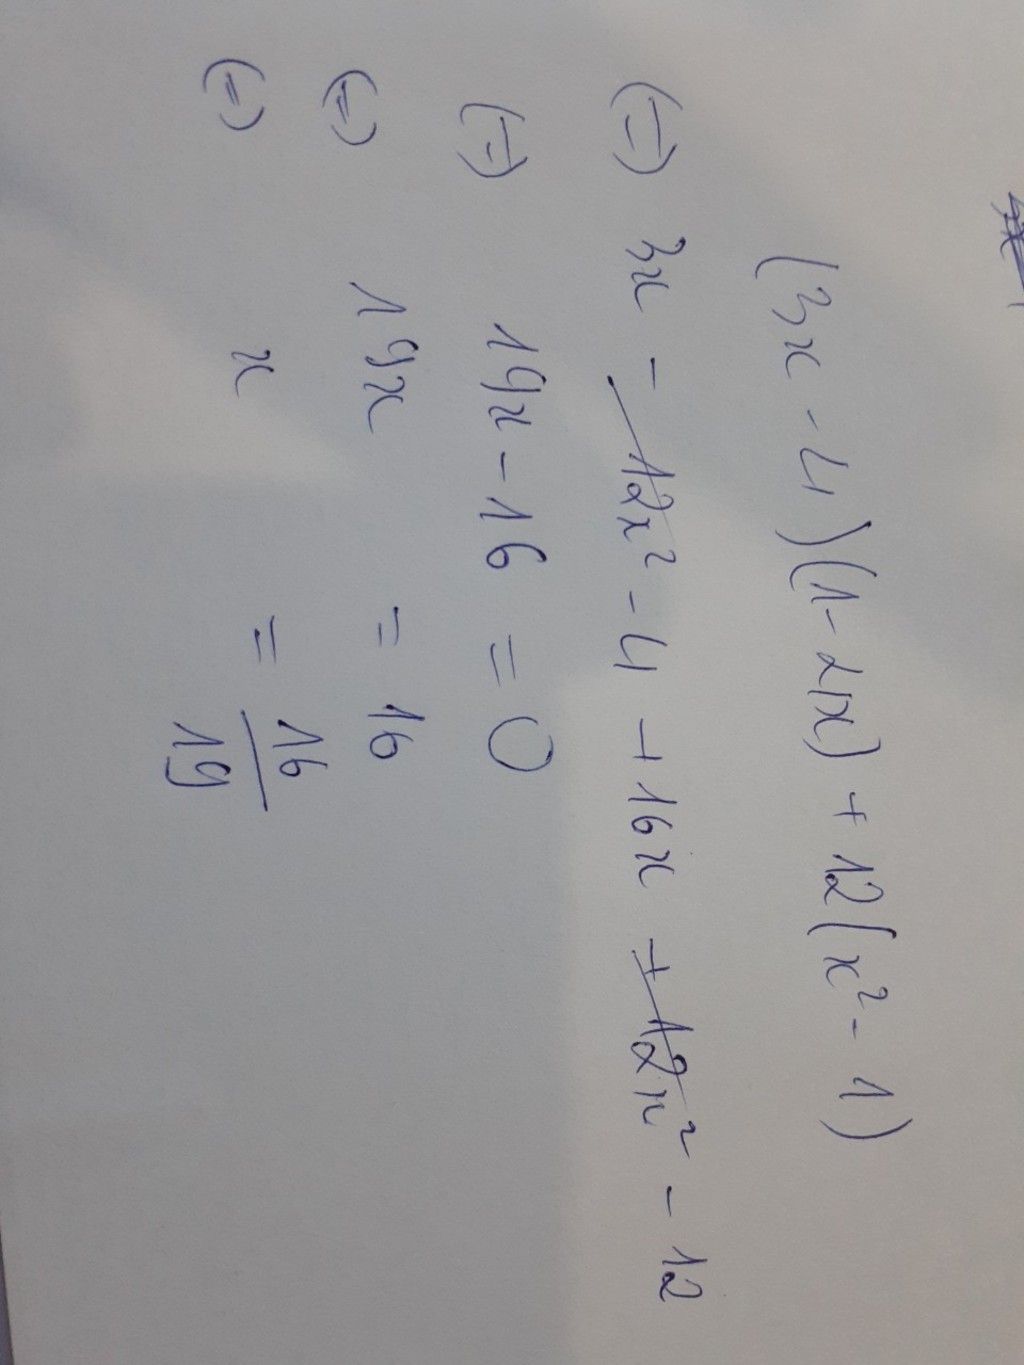 (3x - 4)(1 - 4x) + 12(x² - 1)
(=) 3x - 12x² - 4 + 16x + 12x² - 12
(=) 19x - 16 = 0
(=) 19x = 16
(=) x = 16/19